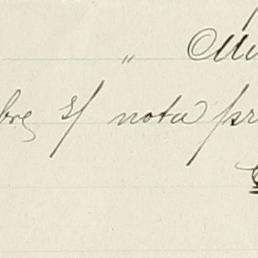 "
bre s/ nota pr